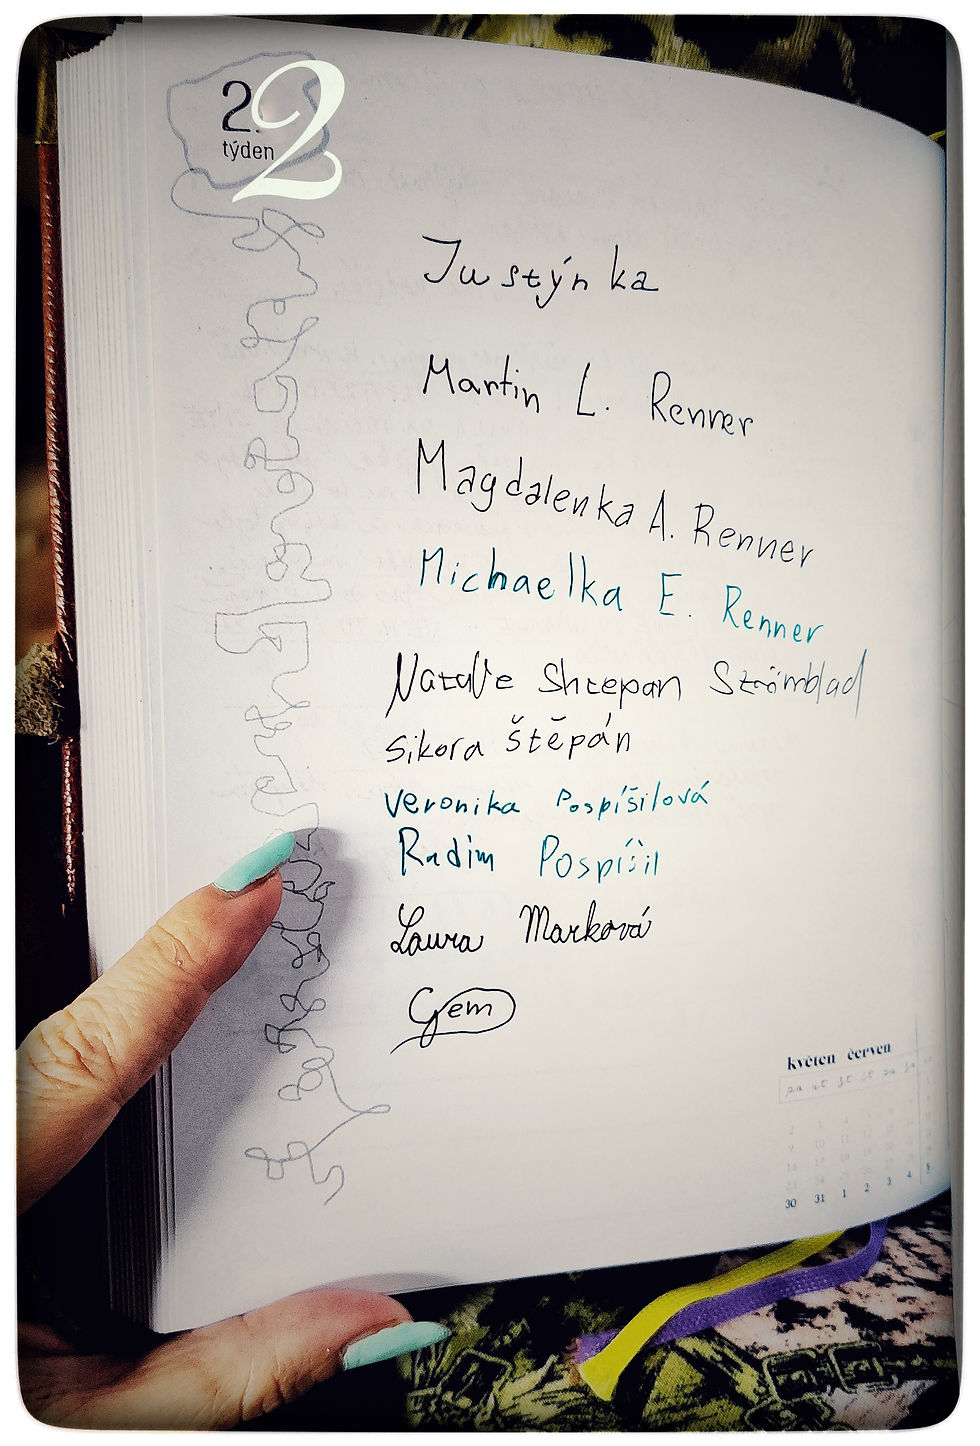 2.2
týden
Justýnka
Martin L. Renner
Magdalenka A. Renner
Michaelka E. Renner
Natalie Shtepan Strömblad
Sikora Štěpán
Veronika Pospíšilová
Radim Pospíšil
Laura Marková
Gem
květen červen
po út st čt pá so
30 31 1 2 3 4 5